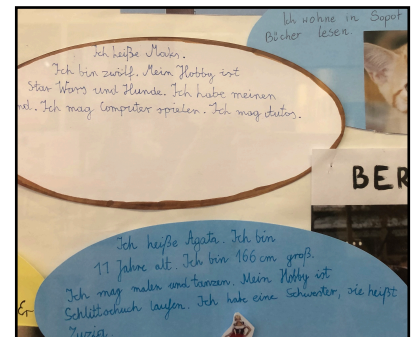 Ich wohne in Sopot
Bücher lesen.
Ich heiße Maks.
Ich bin zwölf. Mein Hobby ist
Star Wars und Hunde. Ich habe meinen
nd. Ich mag Computer spielen. Ich mag Autos.
BER
Ich heiße Agata. Ich bin
11 Jahre alt. Ich bin 166 cm groß.
Ich mag malen und tanzen. Mein Hobby ist
Schlittschuch laufen. Ich habe eine Schwester, sie heißt
Zuzia.
Er